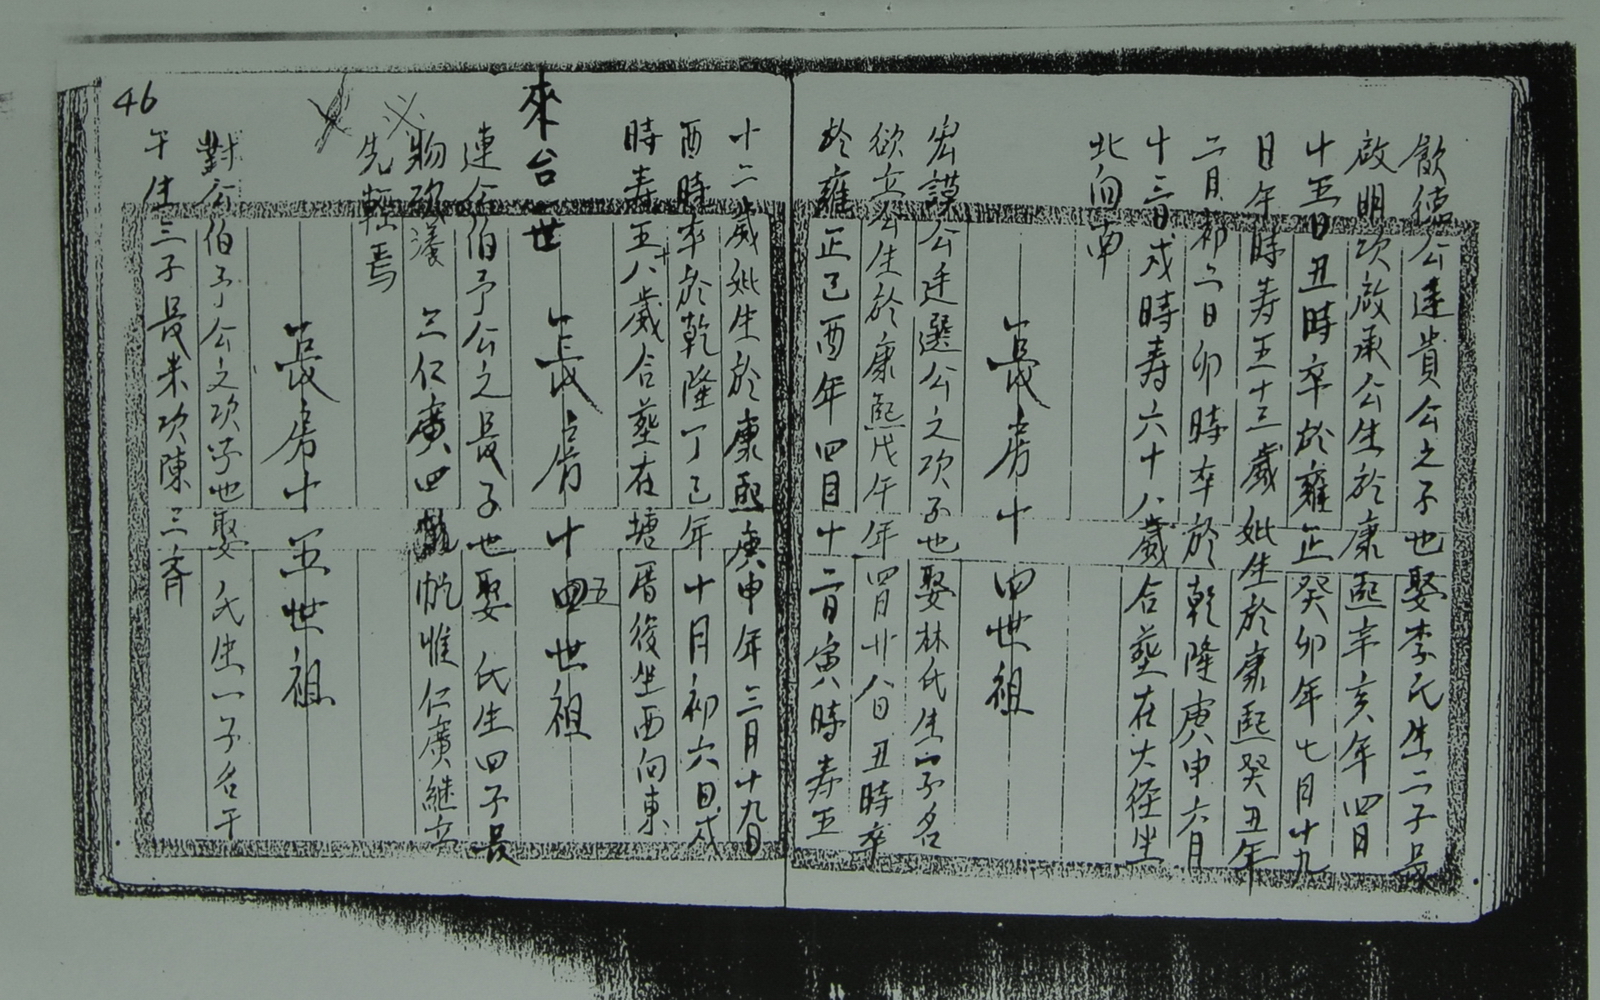 飲德公達貴公之子也娶李氏生二子長
啟明次啟承公生於康熙辛亥年四月
十五日丑時卒於雍正癸卯年七月十九
日午時壽五十三歲妣生於康熙癸丑年
二月初二日卯時卒於乾隆庚申六月
十三日戌時壽六十八歲合塟在大徑坐
北向南
長房十四世祖
宏謨公廷選公之次子也娶林氏生一子名
欲立公生於康熙戊午年四月廿八日丑時卒
於雍正己酉年四月十二日寅時壽五
十二歲妣生於康熙庚申年三月十九日
酉時卒於乾隆丁巳年十月初六日戌
時壽五十八歲合塟在塘厝後坐西向東
來台世 長房十五世祖
連公伯予公之長子也娶 氏生四子長
物次漢 三仁廣四 帆惟仁廣継立
先輊焉
長房十五世祖
對公伯予公之次子也娶 氏生一子名干
午生三子長来次陳三齊
46